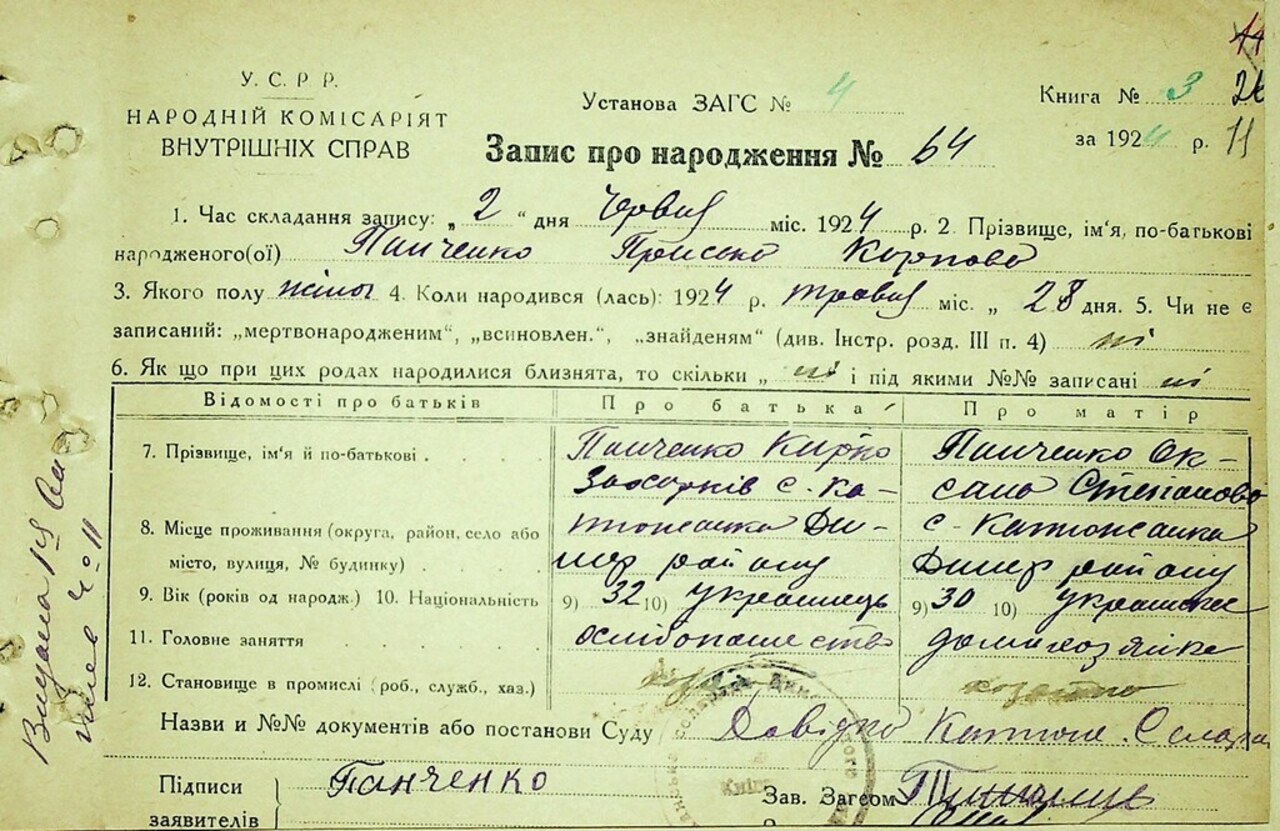 У. С. Р. Р.
НАРОДНІЙ КОМІСАРІЯТ
ВНУТРІШНІХ СПРАВ
Установа ЗАГС № 4
Книга № 3
за 1924 р. 11
Запис про народження № 64
1. Час складання запису: „ 2 “ дня Червня міс. 1924 р. 2. Прізвище, ім'я, по-батькові
народженого(ої) Панченко Приська Карпова
3. Якого полу жіноч 4. Коли народився (лась): 1924 р. травня міс. „ 28 дня. 5. Чи не є
записаний: „мертвонародженим“, „всиновлен.“, „знайденям“ (див. Інстр. розд. III п. 4) ні
6. Як що при цих родах народилися близнята, то скільки „ ні і під якими №№ записані ні
Відомості про батьків Про батька Про матір
7. Прізвище, ім'я й по-батькові Панченко Панченко Ок-
с. Ка- сана Степанова
8. Місце проживання (округа, район, село або тюжанка Ди- с. Катюжанка
місто, вулиця, № будинку) мер району Димер району
9. Вік (років од народж.) 10. Національність 9) 32 10) Українець 9) 30 10) Українка
11. Головне заняття хлібопашество домохозяйка
12. Становище в промислі (роб., служб., хаз.)
Назви и №№ документів або постанови Суду Довідка Катюж.
Підписи Панченко Зав. Загсом
заявителів